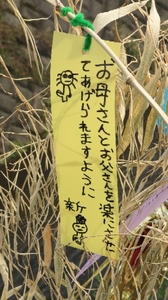 お母さんとお父さんを楽にさせ
てあげいられますように